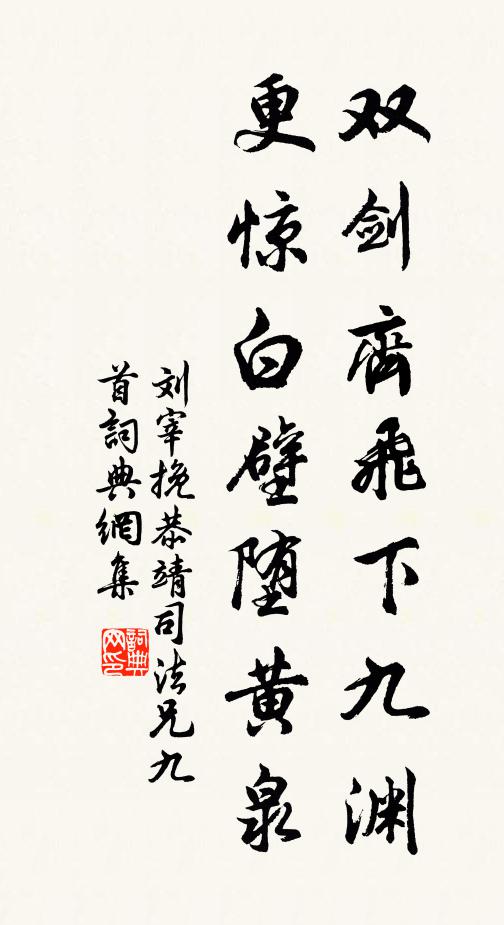 双剑齊飛下九渊
更惊白壁堕黄泉
刘宰挽恭靖司法兄九
首詞典網集
詞典网印